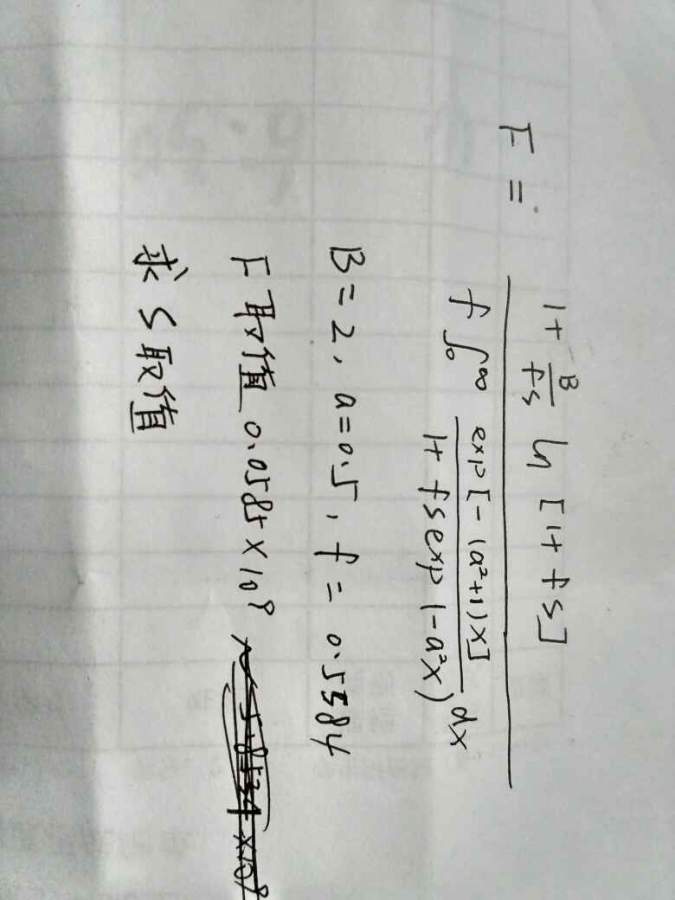 F = (1 + B/(fs) ln[1+fs]) / (f ∫₀^∞ exp[-(a²+1)x] / (1+fs exp(-a²x)) dx)
B=2, a=0.5, f=0.5384
F取值 0.0585×10⁸
求S取值